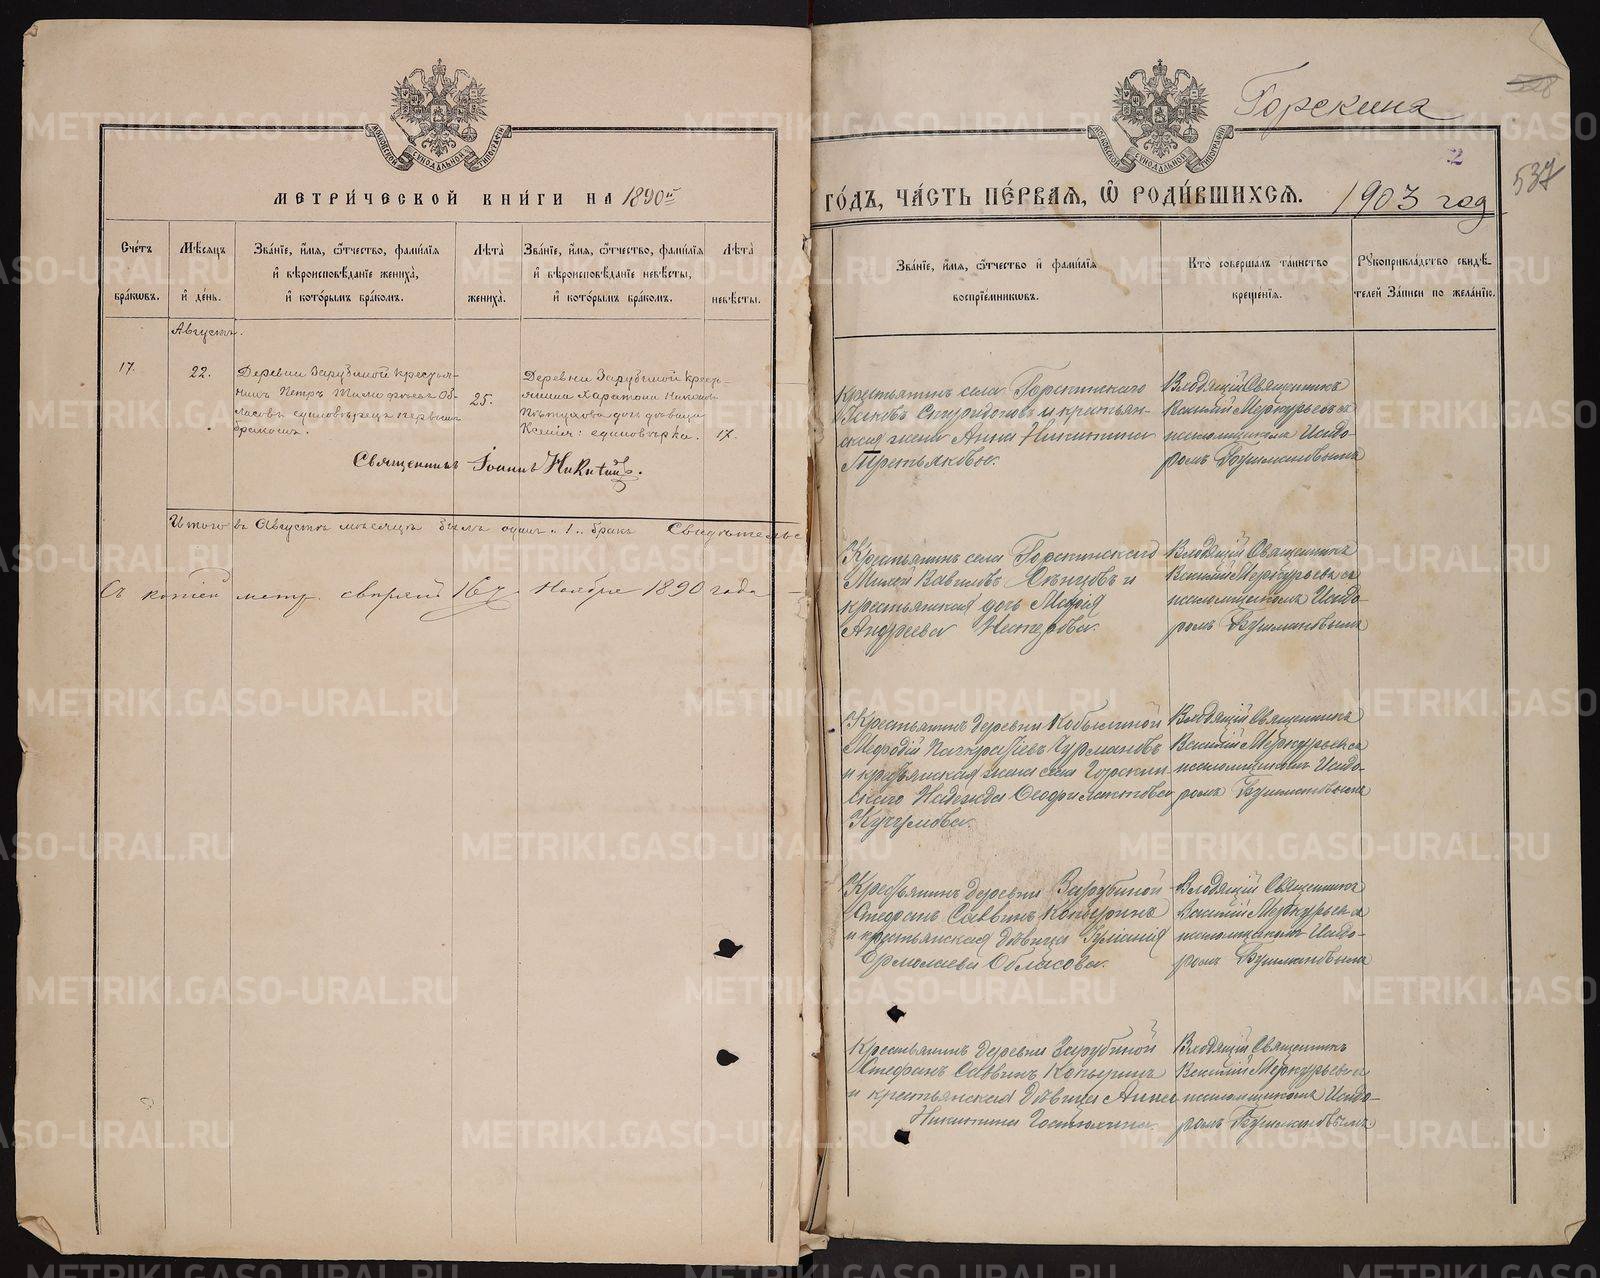 МЕТРИ́ЧЕСКОЙ КНИ́ГИ НА 1890й
Сче́тъ бра́кѡвъ.
Мѣ́сѧцъ и҆ де́нь.
Зва́нїе, и҆́мѧ, ѻ҆́тчество, фами́лїѧ и҆ вѣроисповѣ́данїе жениха̀, и҆ кото́рымъ бра́комъ.
Лѣ́та жениха̀.
Зва́нїе, и҆́мѧ, ѻ҆́тчество, фами́лїѧ и҆ вѣроисповѣ́данїе невѣ́сты, и҆ кото́рымъ бра́комъ.
Лѣ́та невѣ́сты.
Августъ.
17.
22.
Деревни Зарубиной крестья-
нинъ Петръ Тимофеевъ Об-
ласовъ единовѣрецъ первымъ
бракомъ.
25.
Деревни Зарубиной крест-
янина Харитона
Пѣтухова дочь дѣвица
Ксенія: единовѣрка.
17.
Священникъ Іоаннъ Никитинъ.
Итого въ Августѣ мѣсяцѣ былъ одинъ „1„ бракъ
Съ копіей метр. 16 Ноября 1890 года
Горскина
528
2
537
ГО́ДЪ, ЧА́СТЬ ПЕ́РВАѦ, Ѽ РОДИ́ВШИХСѦ. 1903 год
Зва́нїе, и҆́мѧ, ѻ҆́тчество и҆ фами́лїѧ воспрїе́мникѡвъ.
Кто̀ соверша́лъ та́инство креще́нїѧ.
Рꙋкоприкла́дство свидѣ́-
телей за́писи по жела́нїю.
Крестьянинъ села Горскинскаго
Іаковъ Спиридоновъ и крестьян-
ская жена Анна Никитина
Третьякова.
Входящій Священникъ
Василій Меркурьевъ съ
псаломщикомъ Исидо-
ромъ Бушмановымъ
Крестьянинъ села Горскинскаго
Михей Вавиловъ и
крестьянская дочь Марія
Андреева
Входящій Священникъ
Василій Меркурьевъ съ
псаломщикомъ Исидо-
ромъ Бушмановымъ
Крестьянинъ деревни Кобылиной
Меѳодій Панкратіевъ Чурмановъ
и крестьянская жена села Горскин-
скаго Надежда Ѳеофилактова
Кучумова.
Входящій Священникъ
Василій Меркурьевъ съ
псаломщикомъ Исидо-
ромъ Бушмановымъ
Крестьянинъ деревни Зарубиной
Стефанъ Саввинъ Копыринъ
и крестьянская дѣвица Іуліанія
Ермолаева Обласова.
Входящій Священникъ
Василій Меркурьевъ съ
псаломщикомъ Исидо-
ромъ Бушмановымъ
Крестьянинъ деревни Зарубиной
Стефанъ Саввинъ Копыринъ
и крестьянская дѣвица Анна
Никитина
Входящій Священникъ
Василій Меркурьевъ съ
псаломщикомъ Исидо-
ромъ Бушмановымъ
METRIKI.GASO-URAL.RU